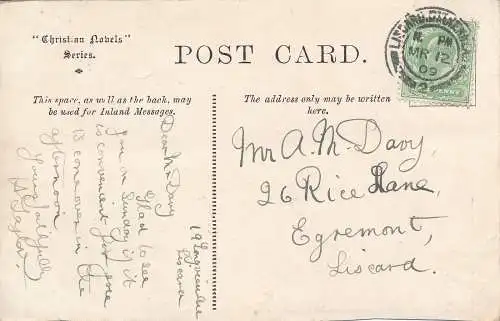 "Christian Novels"
Series.
POST CARD.
This space, as well as the back, may
be used for Inland Messages.
The address only may be written
here.
LISCARD
PM
MR 12
09
Mr A. M. Davy,
26 Rice Lane,
Egremont,
Liscard.
Liscard
Dear Mr Davy
Glad to see
you on Sunday is it
is convenient for
to come over in the
afternoon
Yours faithfully
Taylor